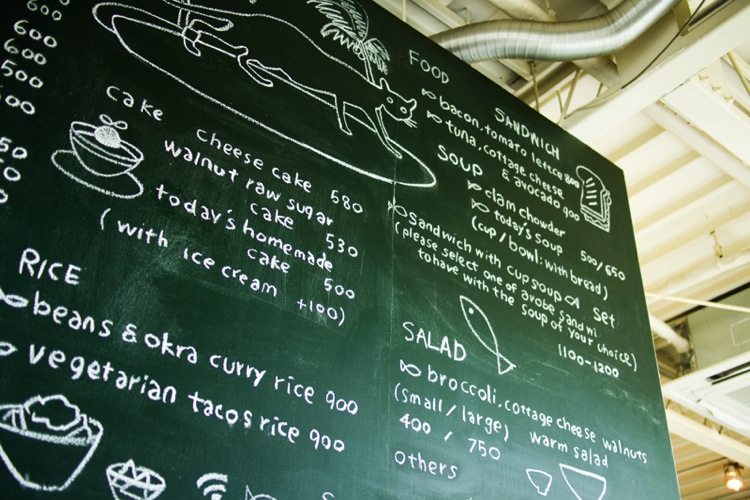 600
600
600
500
500
50
0
cake
cheese cake 580
walnut raw sugar
cake 530
today's homemade
cake 500
(with ice cream +100)
RICE
beans & okra curry rice 900
vegetarian tacos rice 900
FOOD
SANDWICH
bacon, tomato letice 800
tuna, cottage cheese
& avocado 900
SOUP
clam chowder
today's soup 500/650
(cup/bowl: with bread)
Sandwich with cup soup set
(please select one of avobe sandwi
to have with the soup of your choice)
1100-1200
SALAD
broccoli, cottage cheese walnuts
(small/large) warm salad
400 / 750
others